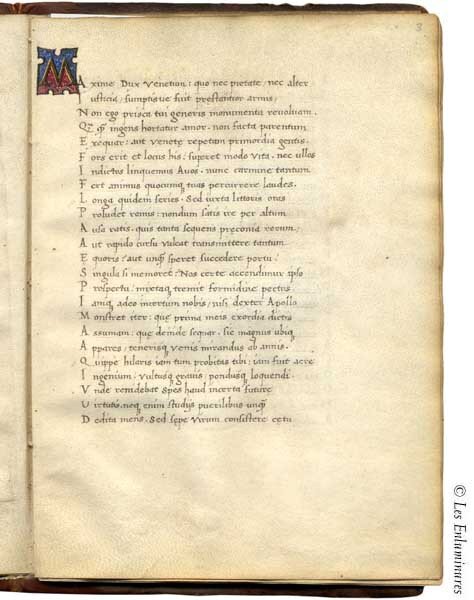 3
MAxime Dux Venetum: quo nec pietate, nec alter
Iusticia, sumptisue fuit prestantior armis,
Non ego prisca tui generis monumenta reuoluam.
Q; q̄ ingens hortatur amor. non facta parentum
Exequar: aut venetę repetam primordia gentis.
Fors erit et locus his: superet modo vita. nec ullos
Indictos linquemus Auos. nunc carmine tantum
Fert animus quęcunq; tuas percurrere laudes.
Longa quidem series. Sed iuxta littoris oras
Proludet remus: nondum satis ire per altum
Ausa ratis. quis tanta sequens pręconia rerum,
Aut rapido cursu valeat transmittere tantum
Equoris: aut unq̄ speret succedere portu:
Singula si memoret: Nos certe accendimur ipso
Prospectu, mixtaq; tremit formidine pectus
Iamq; adeo incertum nobis, nisi dexter Apollo
Monstret iter: que prima meis exordia dictis
Assumam: que deinde sequar. sic magnus ubiq;
Appares, tenerisq; venis mirandus ab annis.
Quippe hilaris iam tum probitas tibi: iam fuit acre
Ingenium, vultusq; grauis, pondusq; loquendi
Vnde renidebat spes haud incerta future
Virtutis. neq; enim studijs puerilibus unq̄
Dedita mens. Sed sepe virum consistere cetu
© Les Enluminures